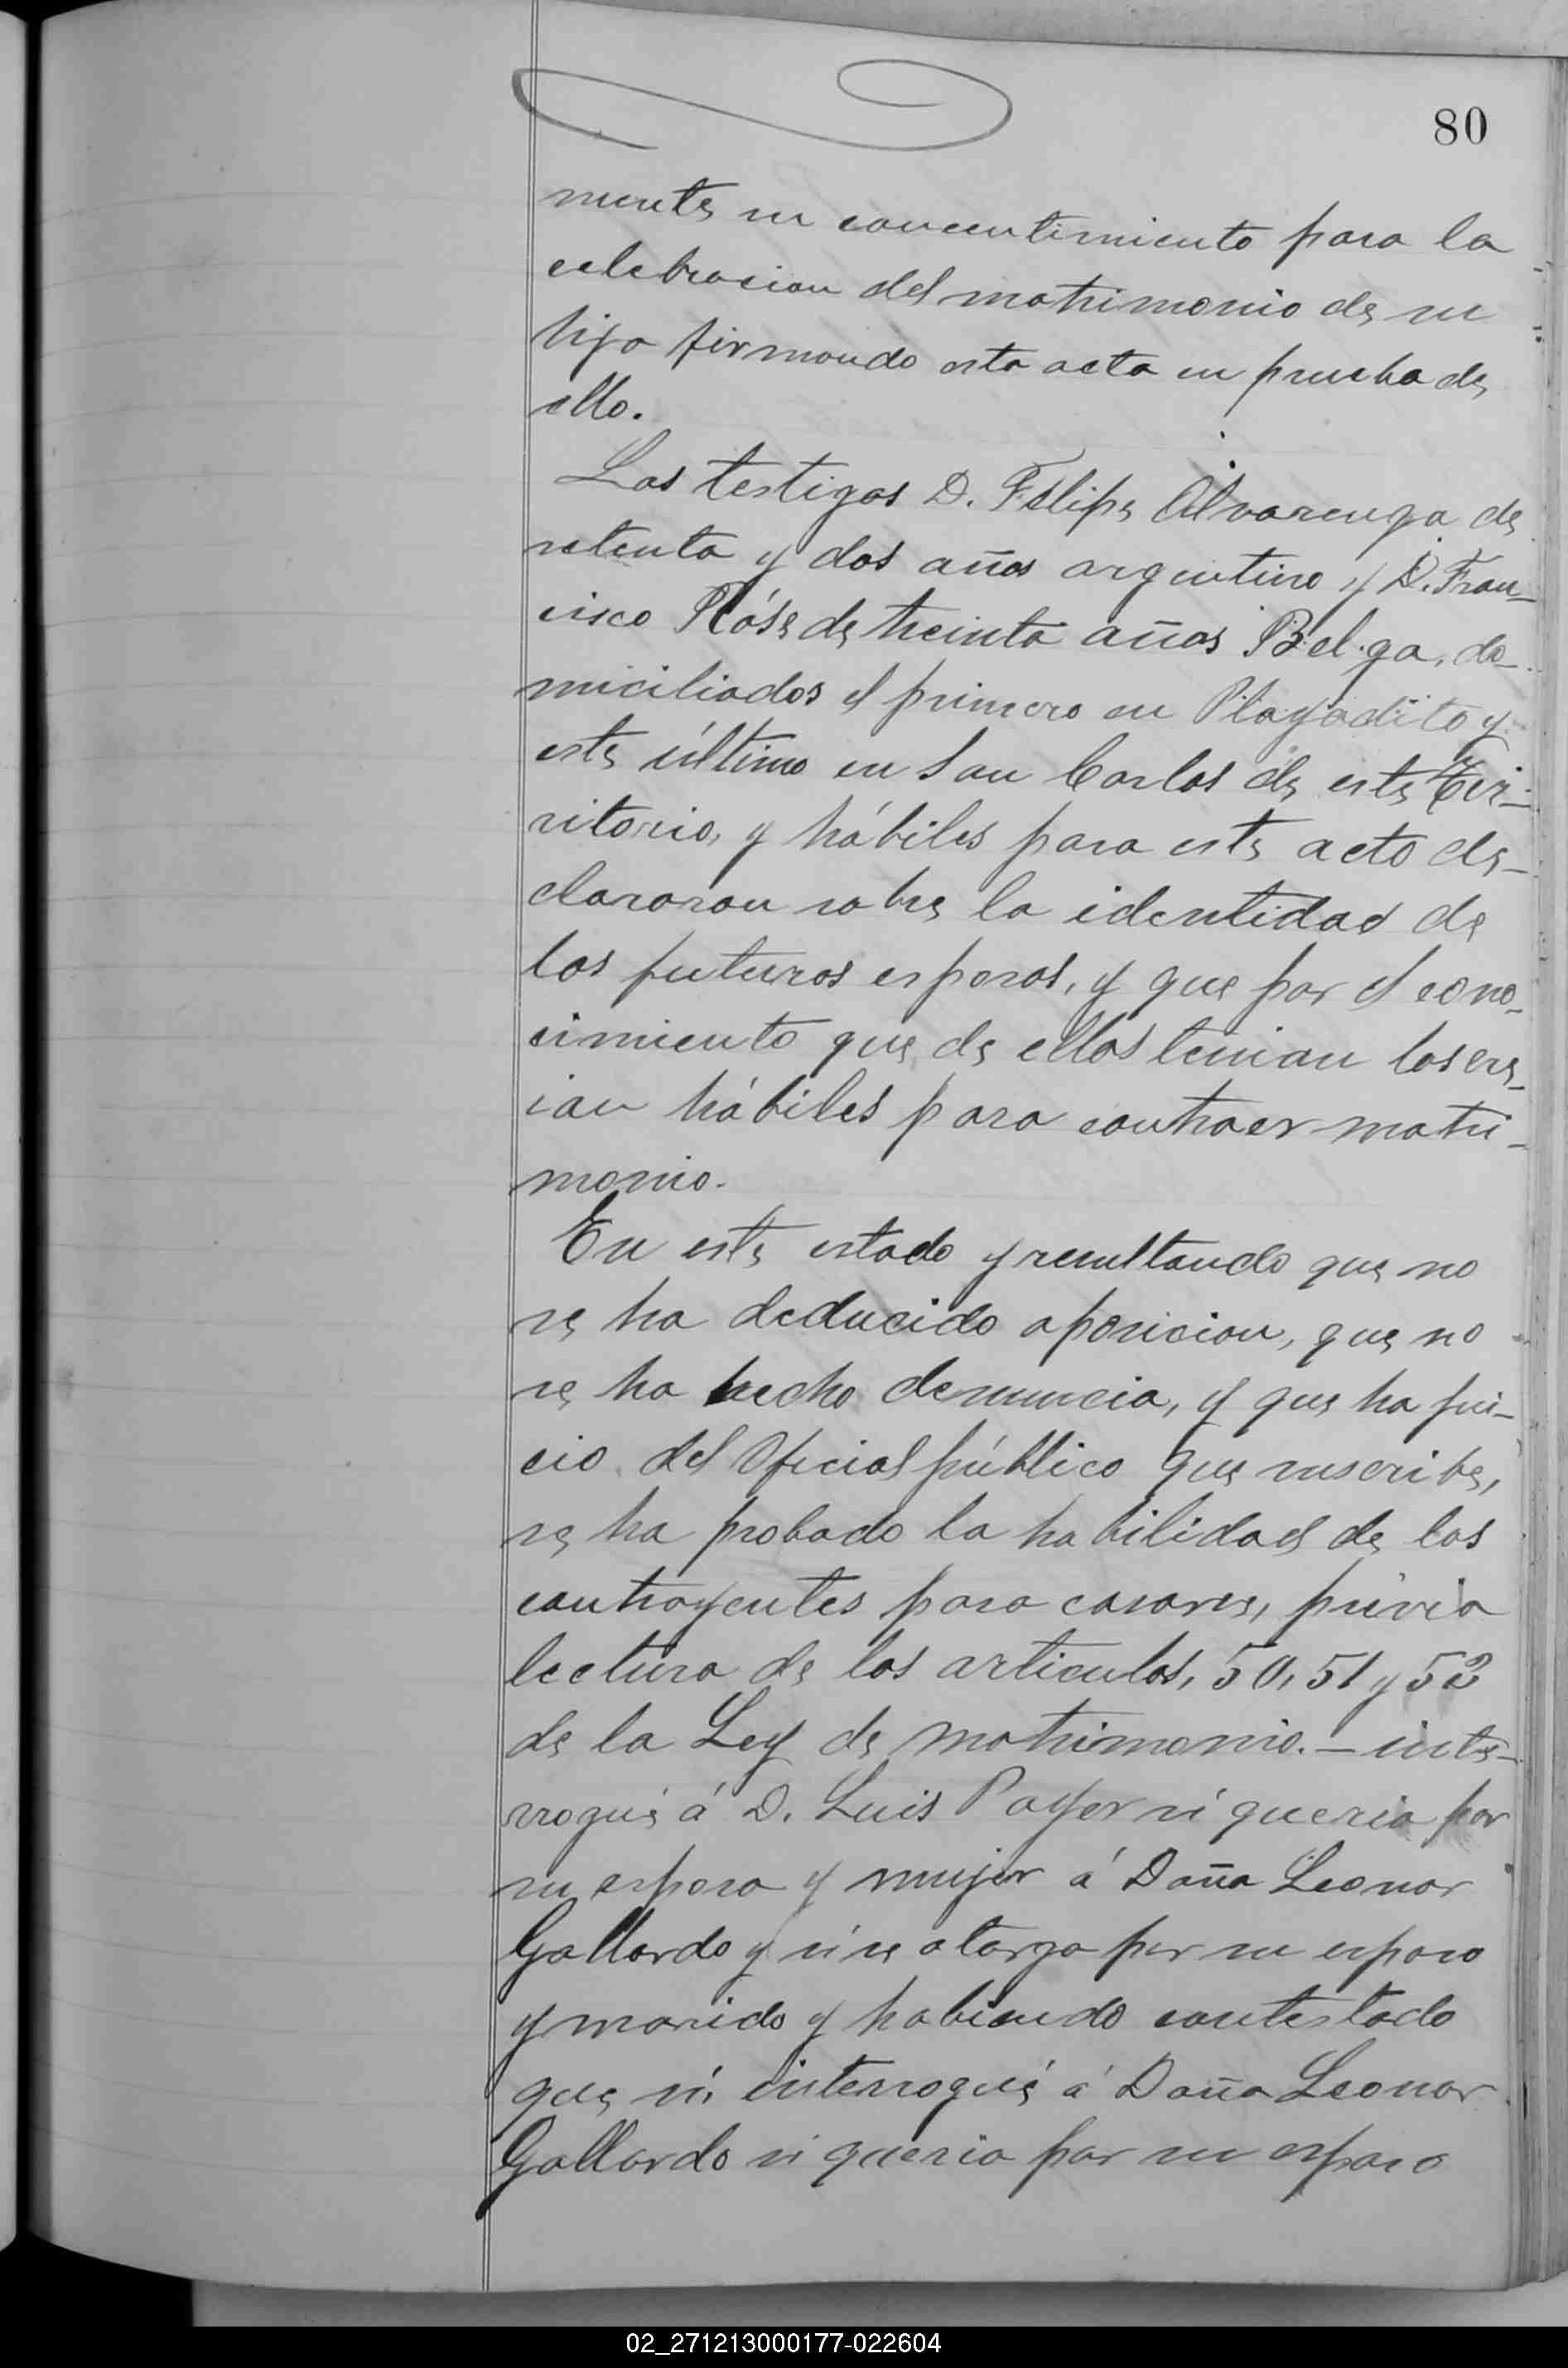 80
mente su concentimiento para la
celebracion del matrimonio de su
hijo firmando esta acta en prueba de
ello.
Los testigos D. Felipe Alvarenga de
setenta y dos años argentino y D. Fran-
cisco Róse de treinta años Belga, do-
miciliados el primero en Playadito y
este último en San Carlos de este Ter-
ritorio, y hábiles para este acto de-
clararon sobre la identidad de
los futuros esposos, y que por el cono-
cimiento que de ellos tenian los cre-
ian hábiles para contraer matri-
monio.
En este estado y resultando que no
se ha deducido oposicion, que no
se ha hecho denuncia, y que ha jui-
cio del Oficial público que suscribe,
se ha probado la habilidad de los
contrayentes para casarse, prévia
lectura de los articulos, 50, 51 y 53
de la Ley de matrimonio. - inte-
rrogué á D. Luis Payer si queria por
su esposa y mujer á Doña Leonor
Gallardo y si se otorga por su esposo
y marido y habiendo contestado
que si, interrogué á Doña Leonor
Gallardo si queria por su esposo
02_271213000177-022604